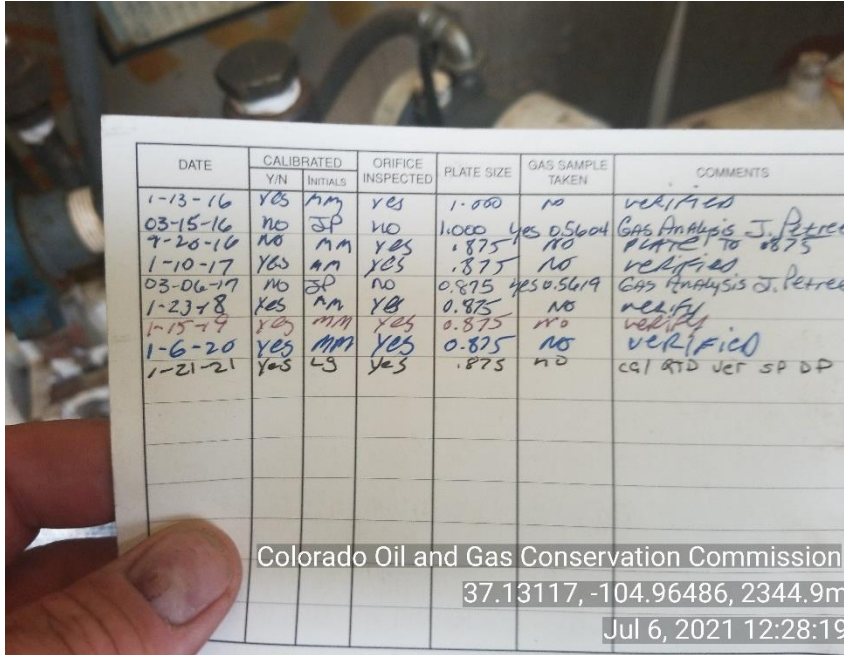 DATE CALIBRATED ORIFICE INSPECTED PLATE SIZE GAS SAMPLE TAKEN COMMENTS
Y/N INITIALS
1-13-16 yes MM yes 1.000 no verified
03-15-16 no JP no 1.000 yes 0.5604 GAS Analysis J. Petree
9-20-16 NO MM yes .875 NO PLATE TO .875
1-10-17 yes MM yes .875 NO verified
03-06-17 NO JP no 0.875 yes 0.5619 GAS Analysis J. Petree
1-23-18 yes MM yes 0.875 NO verify
1-15-19 yes MM yes 0.875 NO verify
1-6-20 yes MM yes 0.875 NO VERIFIED
1-21-21 yes LG yes .875 no cal RTD ver SP DP
Colorado Oil and Gas Conservation Commission
37.13117, -104.96486, 2344.9m
Jul 6, 2021 12:28:19